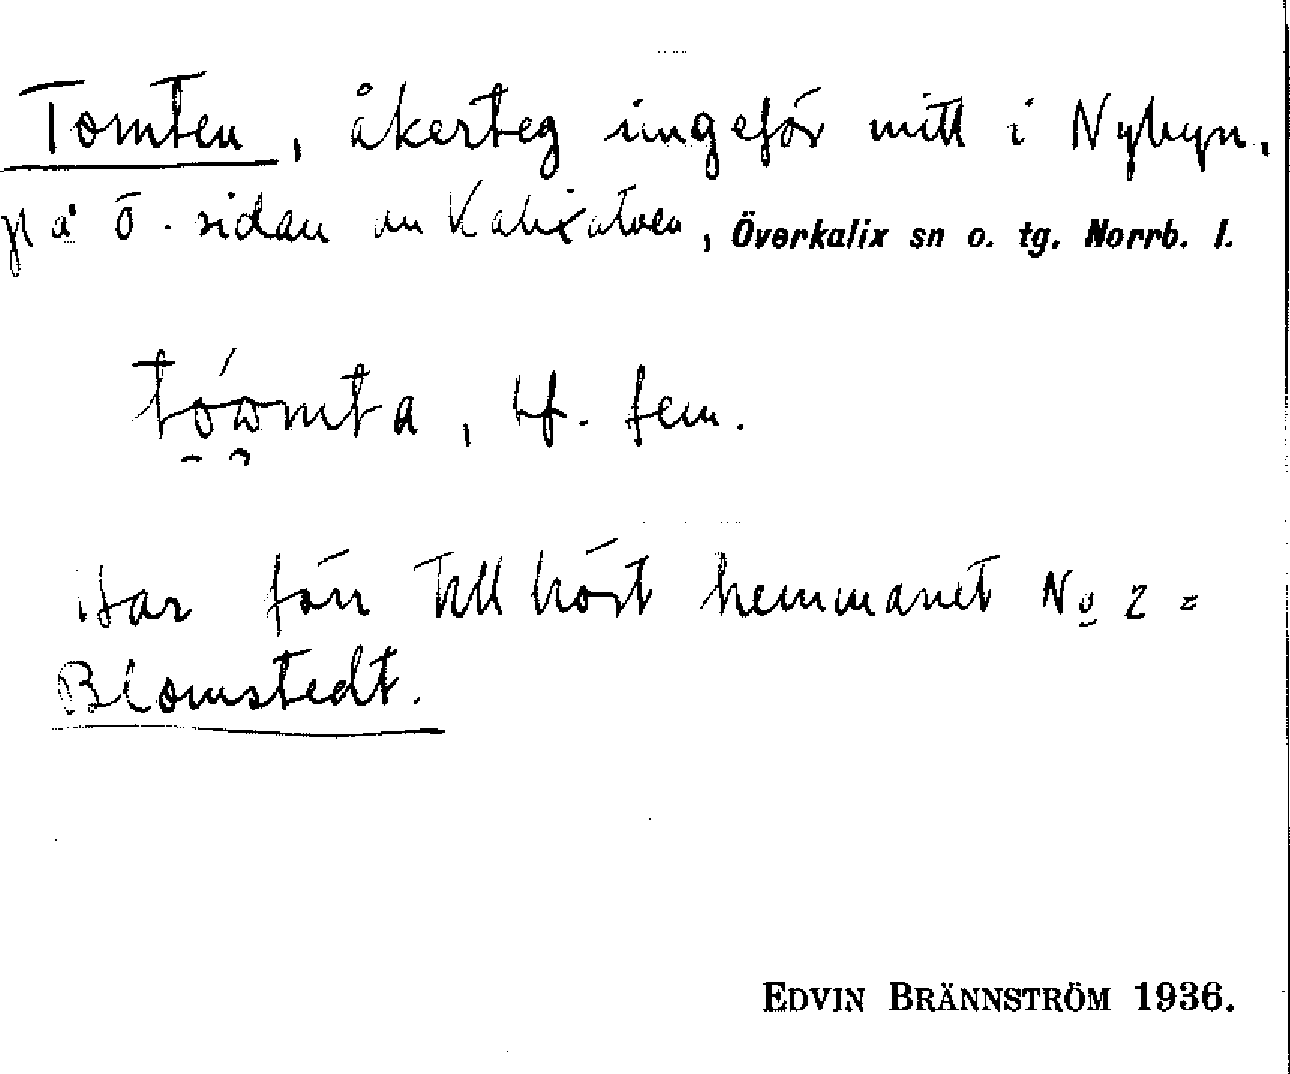 Tomten, åkerteg ungefär mitt i Nybyn,
på ö. sidan av Kalixälven, Överkalix sn o. tg. Norrb. l.
tóomta, bf. fem.
Har förr tillhört hemmanet No 2 =
Blomstedt.
EDVIN BRÄNNSTRÖM 1936.